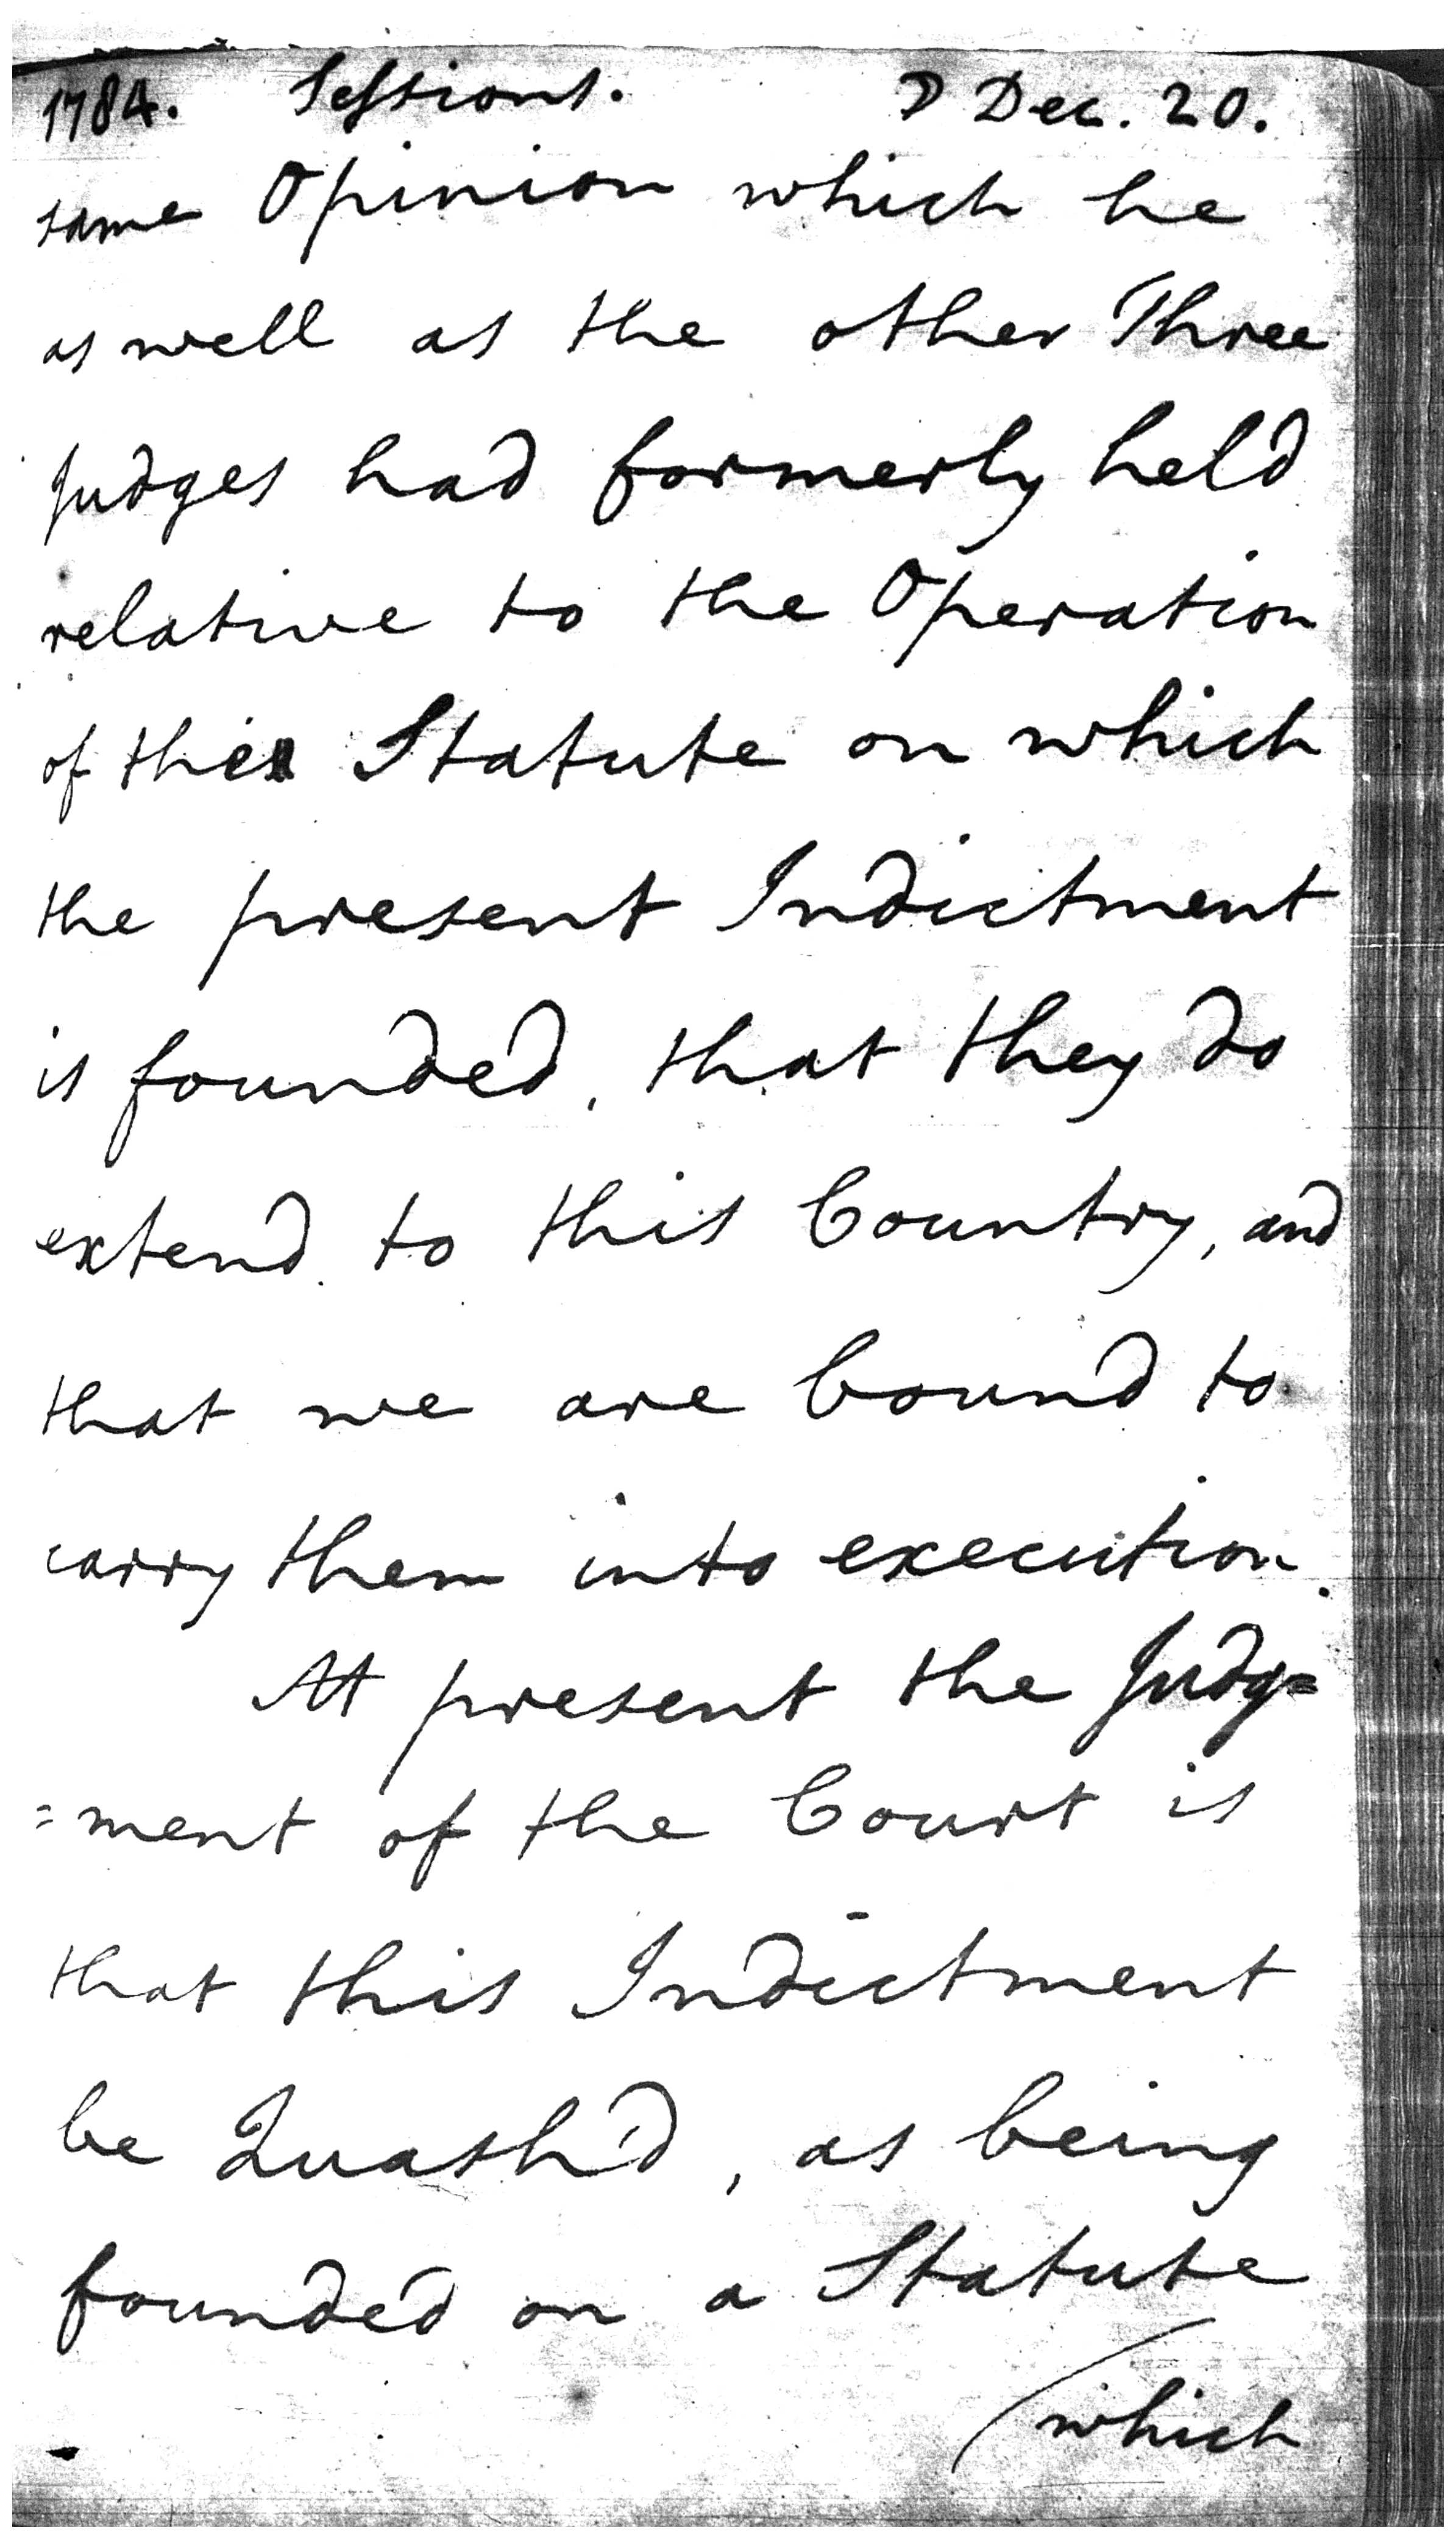 1784. Sessions. ☽ Dec. 20.
same Opinion which he
as well as the other Three
Judges had formerly held
relative to the Operation
of the Statute on which
the present Indictment
is founded, that they do
extend to this Country, and
that we are bound to
carry them into execution.
At present the Judg=
=ment of the Court is
that this Indictment
be Quash'd, as being
founded on a Statute
/which